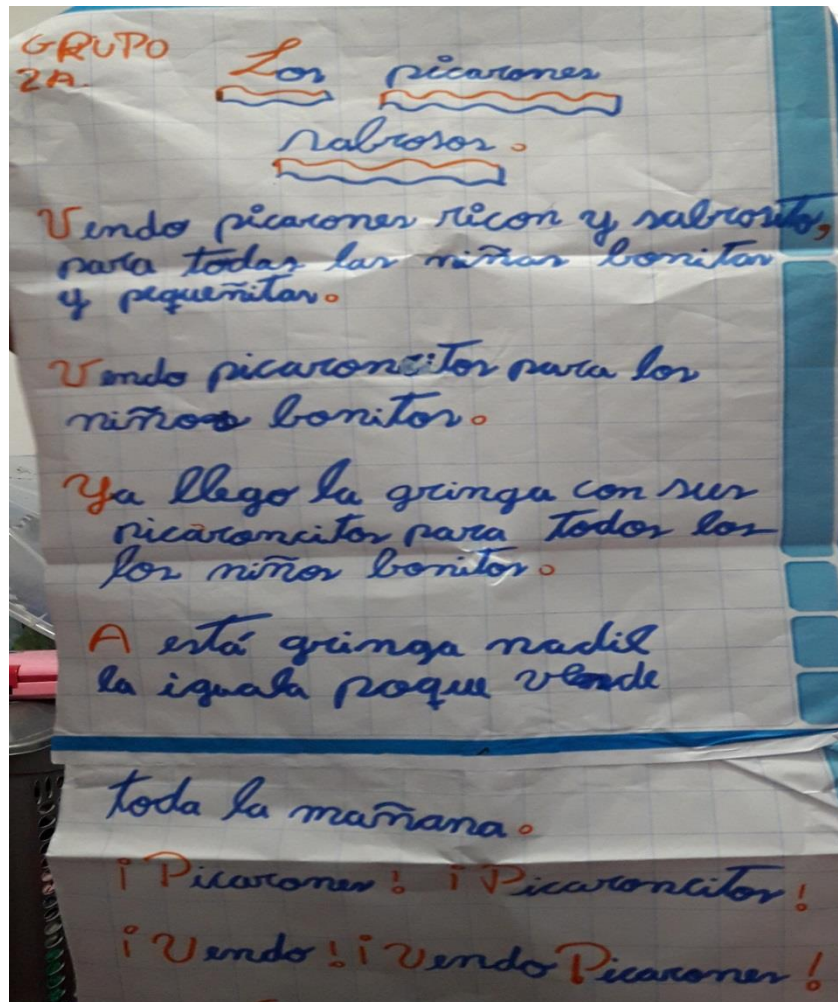 GRUPO
2A.
Los picarones
sabrosos.
Vendo picarones ricon y sabrosito,
para todas las niñas bonitas
y pequeñitas.
Vendo picaroncitos para los
niños bonitos.
Ya llego la gringa con sus
picaroncitos para todos los
los niños bonitos.
A está gringa nadie
la iguala poque vende
toda la mañana.
¡Picarones! ¡Picaroncitos!
¡Vendo! ¡Vendo Picarones!